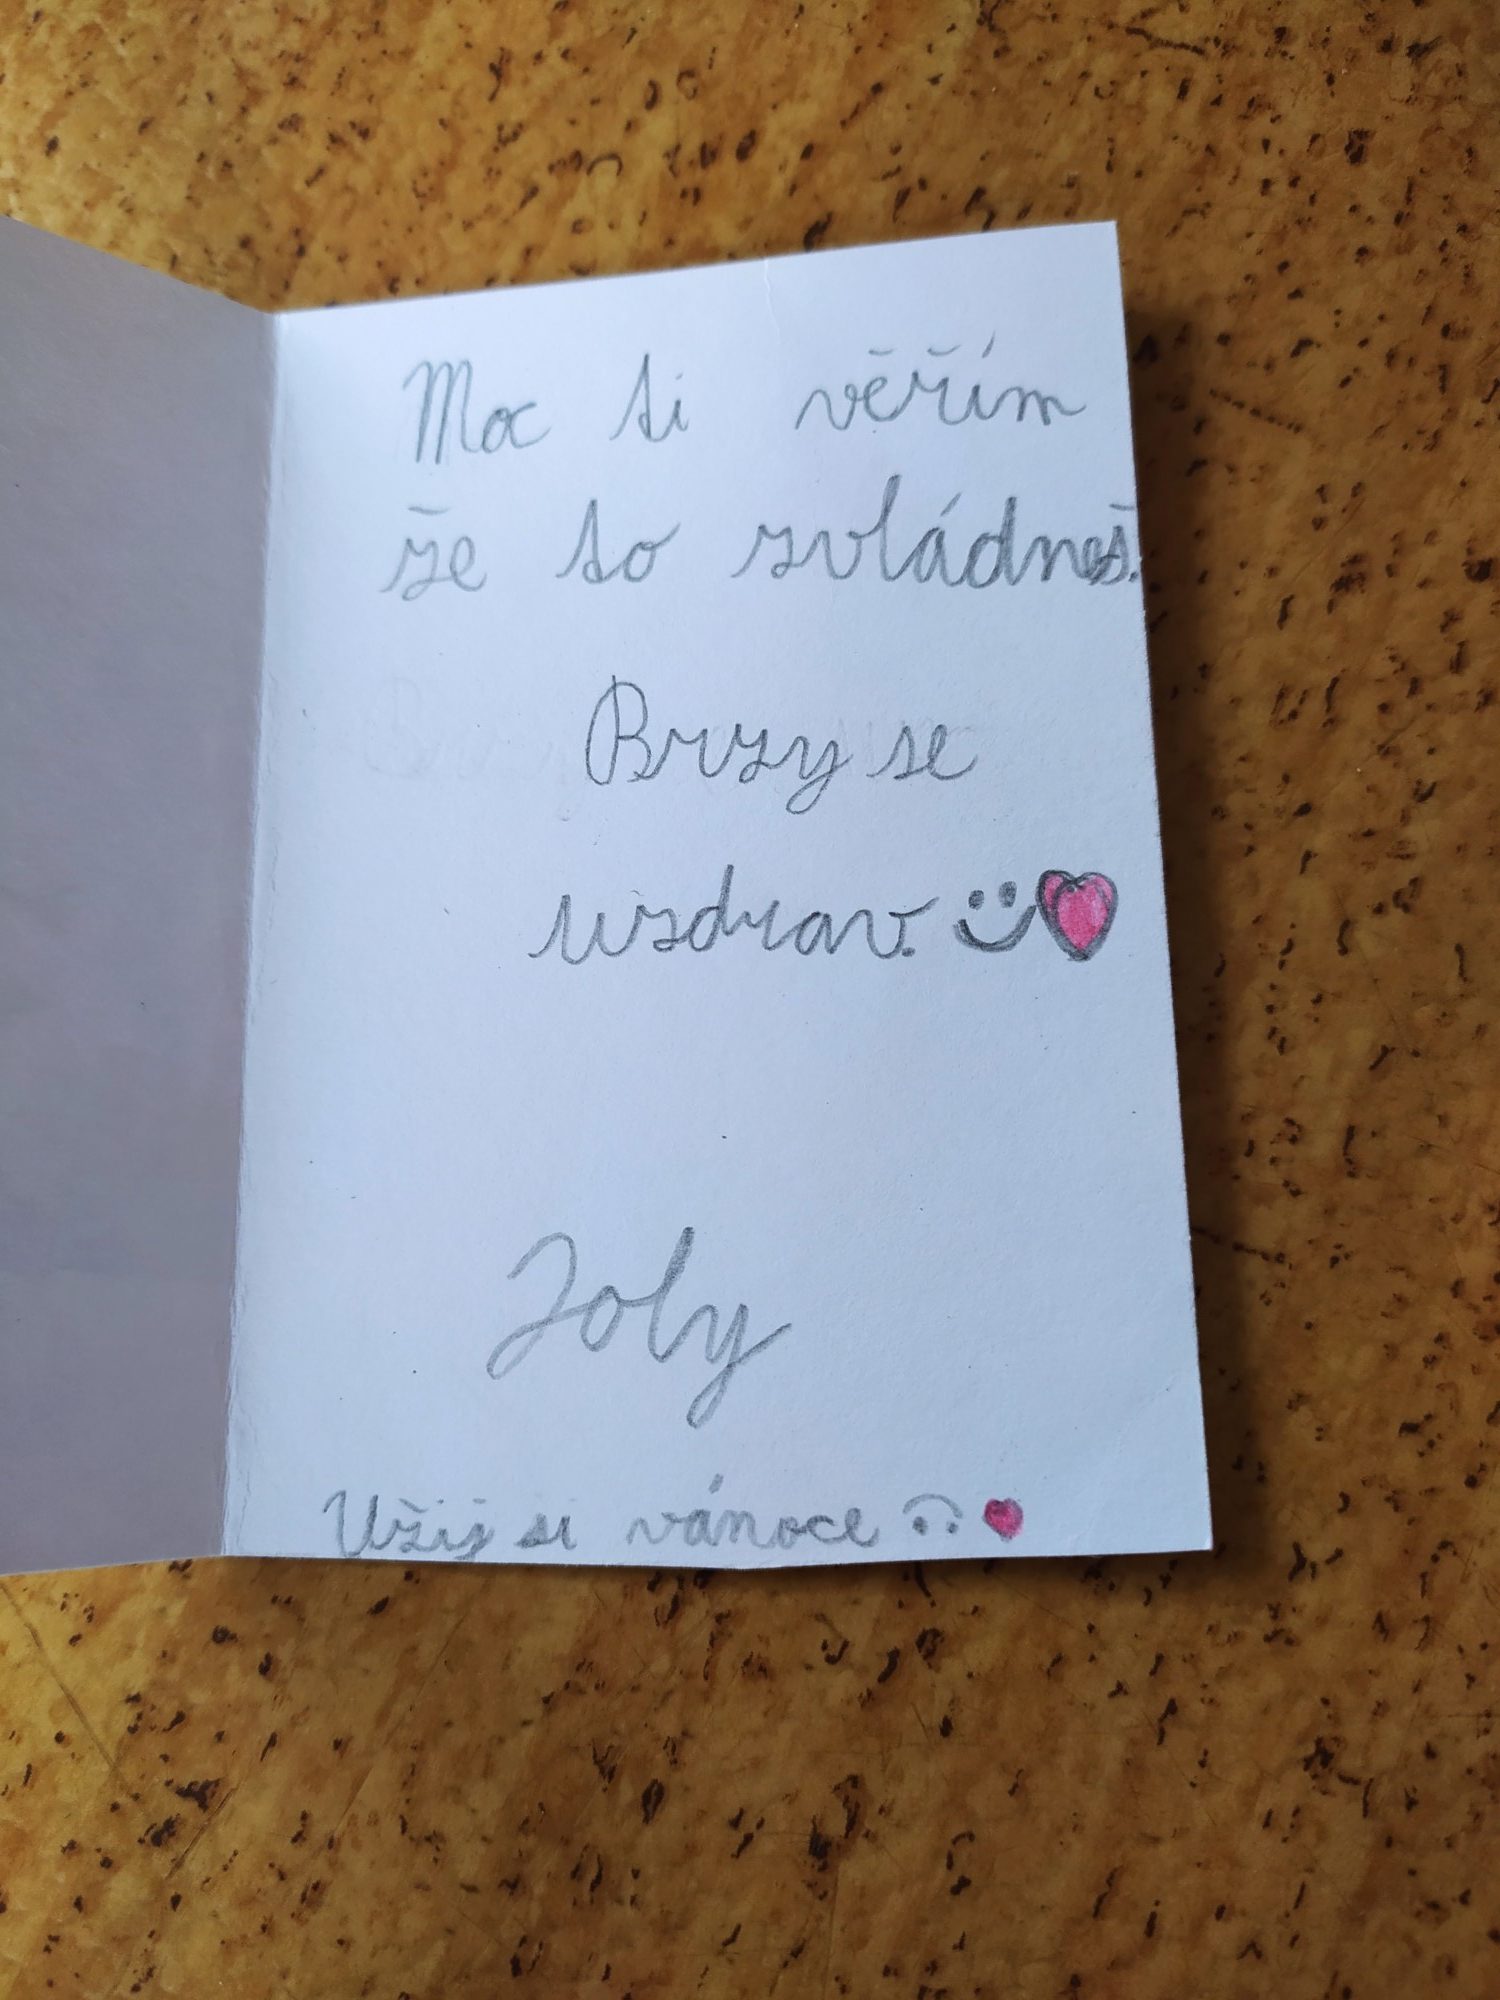 Moc ti věřím
že to zvládneš.
Brzy se
uzdrav.
Joly
Užij si vánoce